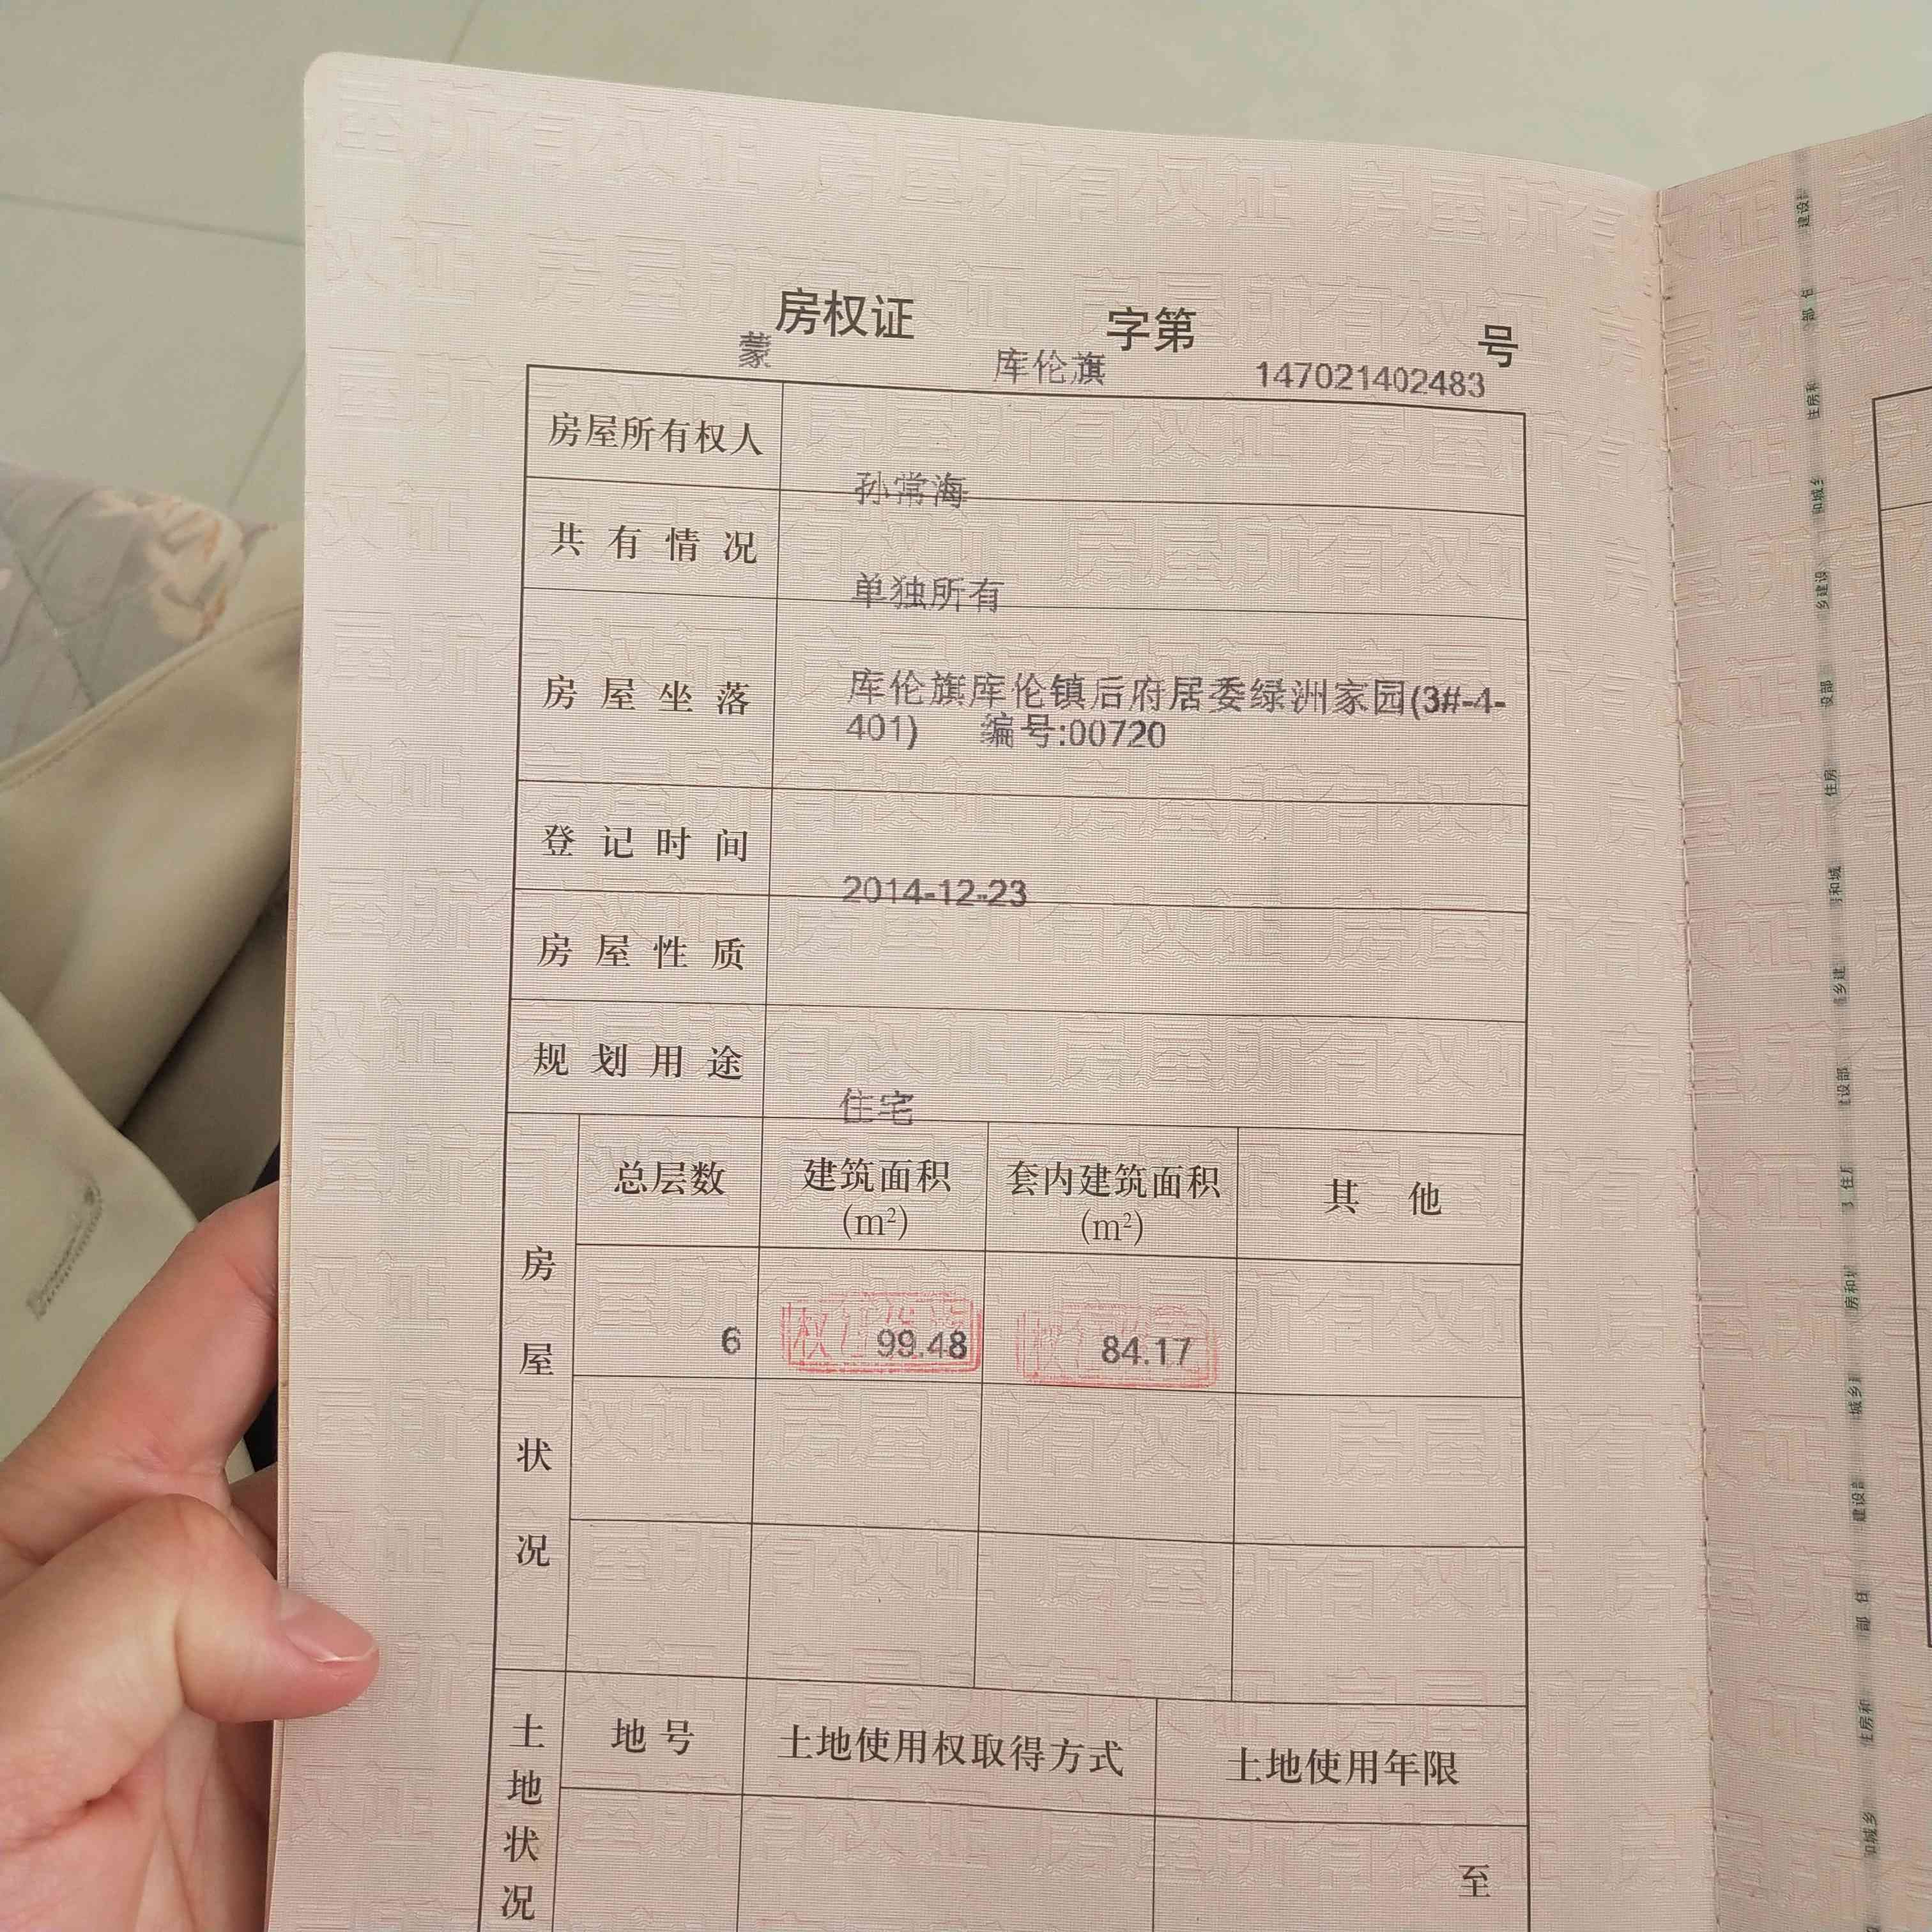 蒙 房权证 库伦旗 字第 147021402483 号
房屋所有权人 孙常海
共有情况 单独所有
房屋坐落 库伦旗库伦镇后府居委绿洲家园(3#-4-
401) 编号:00720
登记时间 2014-12-23
房屋性质
规划用途 住宅
房屋状况
总层数 建筑面积 套内建筑面积 其他
(m²) (m²)
6 99.48 84.17
土地状况
地号 土地使用权取得方式 土地使用年限
至